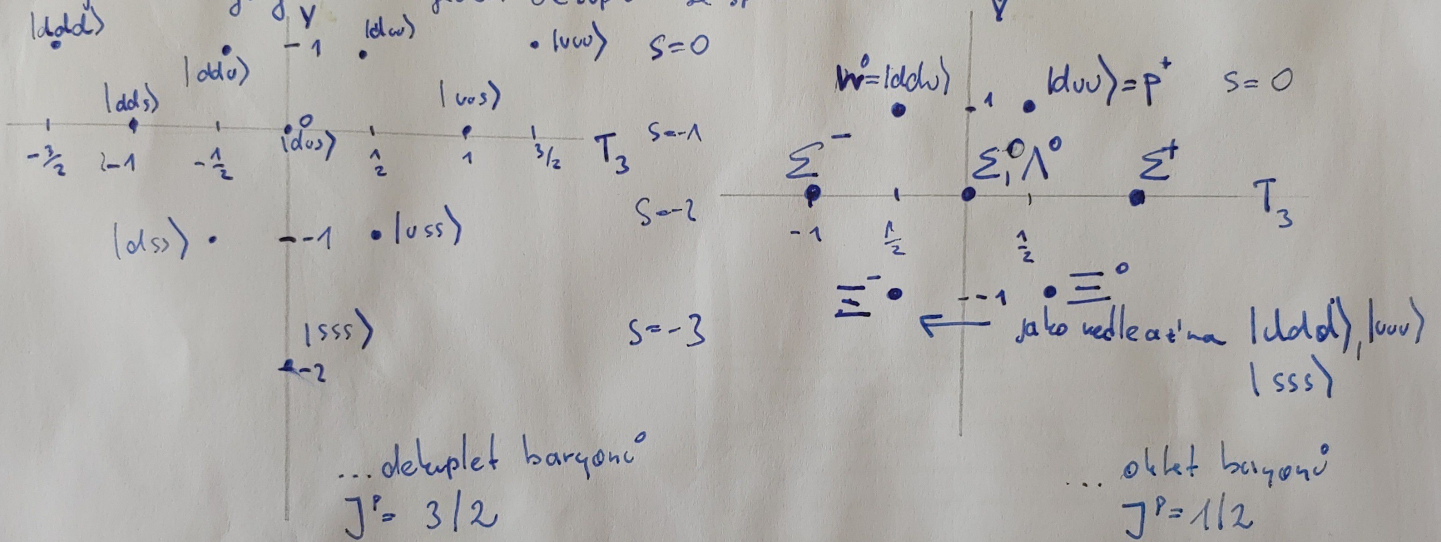 |ddd⟩
Y
|duu⟩
1
|uuu⟩
S=0
|ddu⟩
|dds⟩
|uus⟩
0
|dus⟩
S=-1
-3/2
-1
-1/2
1/2
1
3/2
T₃
S=-2
|dss⟩
-1
|uss⟩
|sss⟩
S=-3
-2
...dekuplet baryonů
Jᴾ= 3/2
Y
n⁰=|ddu⟩
1
|duu⟩=p⁺
S=0
Σ⁻
Σ⁰,Λ⁰
Σ⁺
T₃
-1
1/2
1/2
Ξ⁻
-1
Ξ⁰
← jako vedle až na |ddd⟩,|uuu⟩
|sss⟩
... oktet baryonů
Jᴾ=1/2